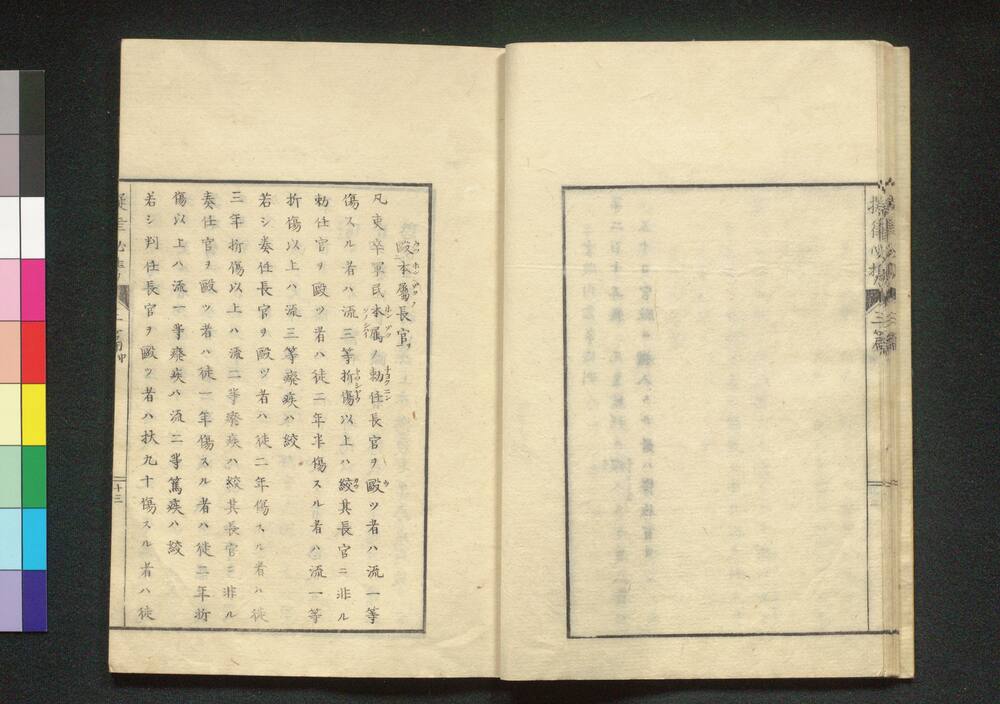 毆本屬長官
凡吏卒軍民本属ノ勅任長官ヲ毆ツ者ハ流一等
傷スル者ハ流三等折傷以上ハ絞其長官ニ非ル
勅任官ヲ毆ツ者ハ徒二年半傷スル者ハ流一等
折傷以上ハ流三等癈疾ハ絞
若シ奏任長官ヲ毆ツ者ハ徒二年傷スル者ハ徒
三年折傷以上ハ流二等癈疾ハ絞其長官ニ非ル
奏任官ヲ毆ツ者ハ徒一年傷スル者ハ徒二年折
傷以上ハ流一等癈疾ハ流二等篤疾ハ絞
若シ判任長官ヲ毆ツ者ハ杖九十傷スル者ハ徒
十三